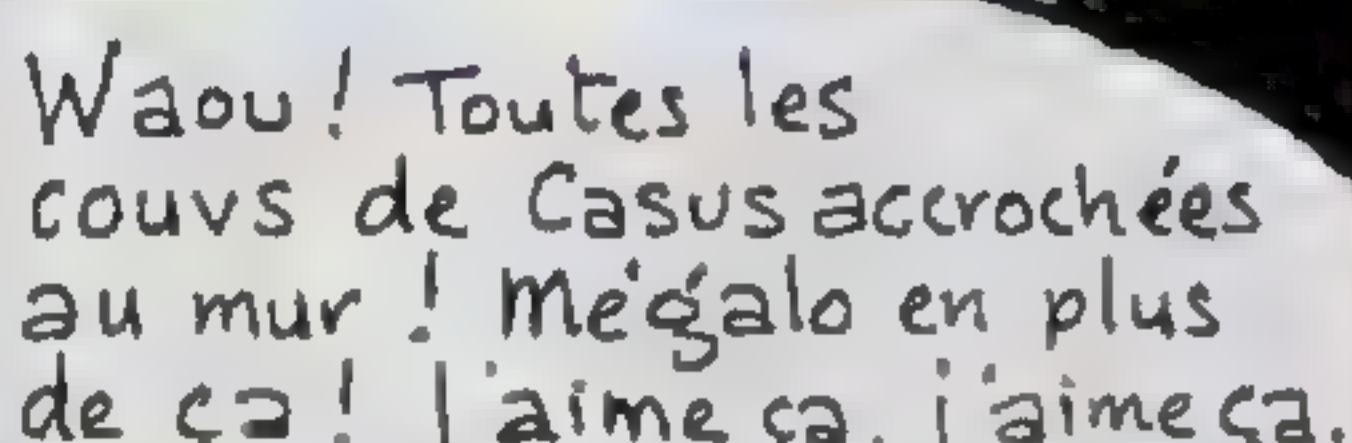 Waou ! Toutes les
couvs de Casus accrochées
au mur ! Mégalo en plus
de ça ! J'aime ça, j'aime ça.